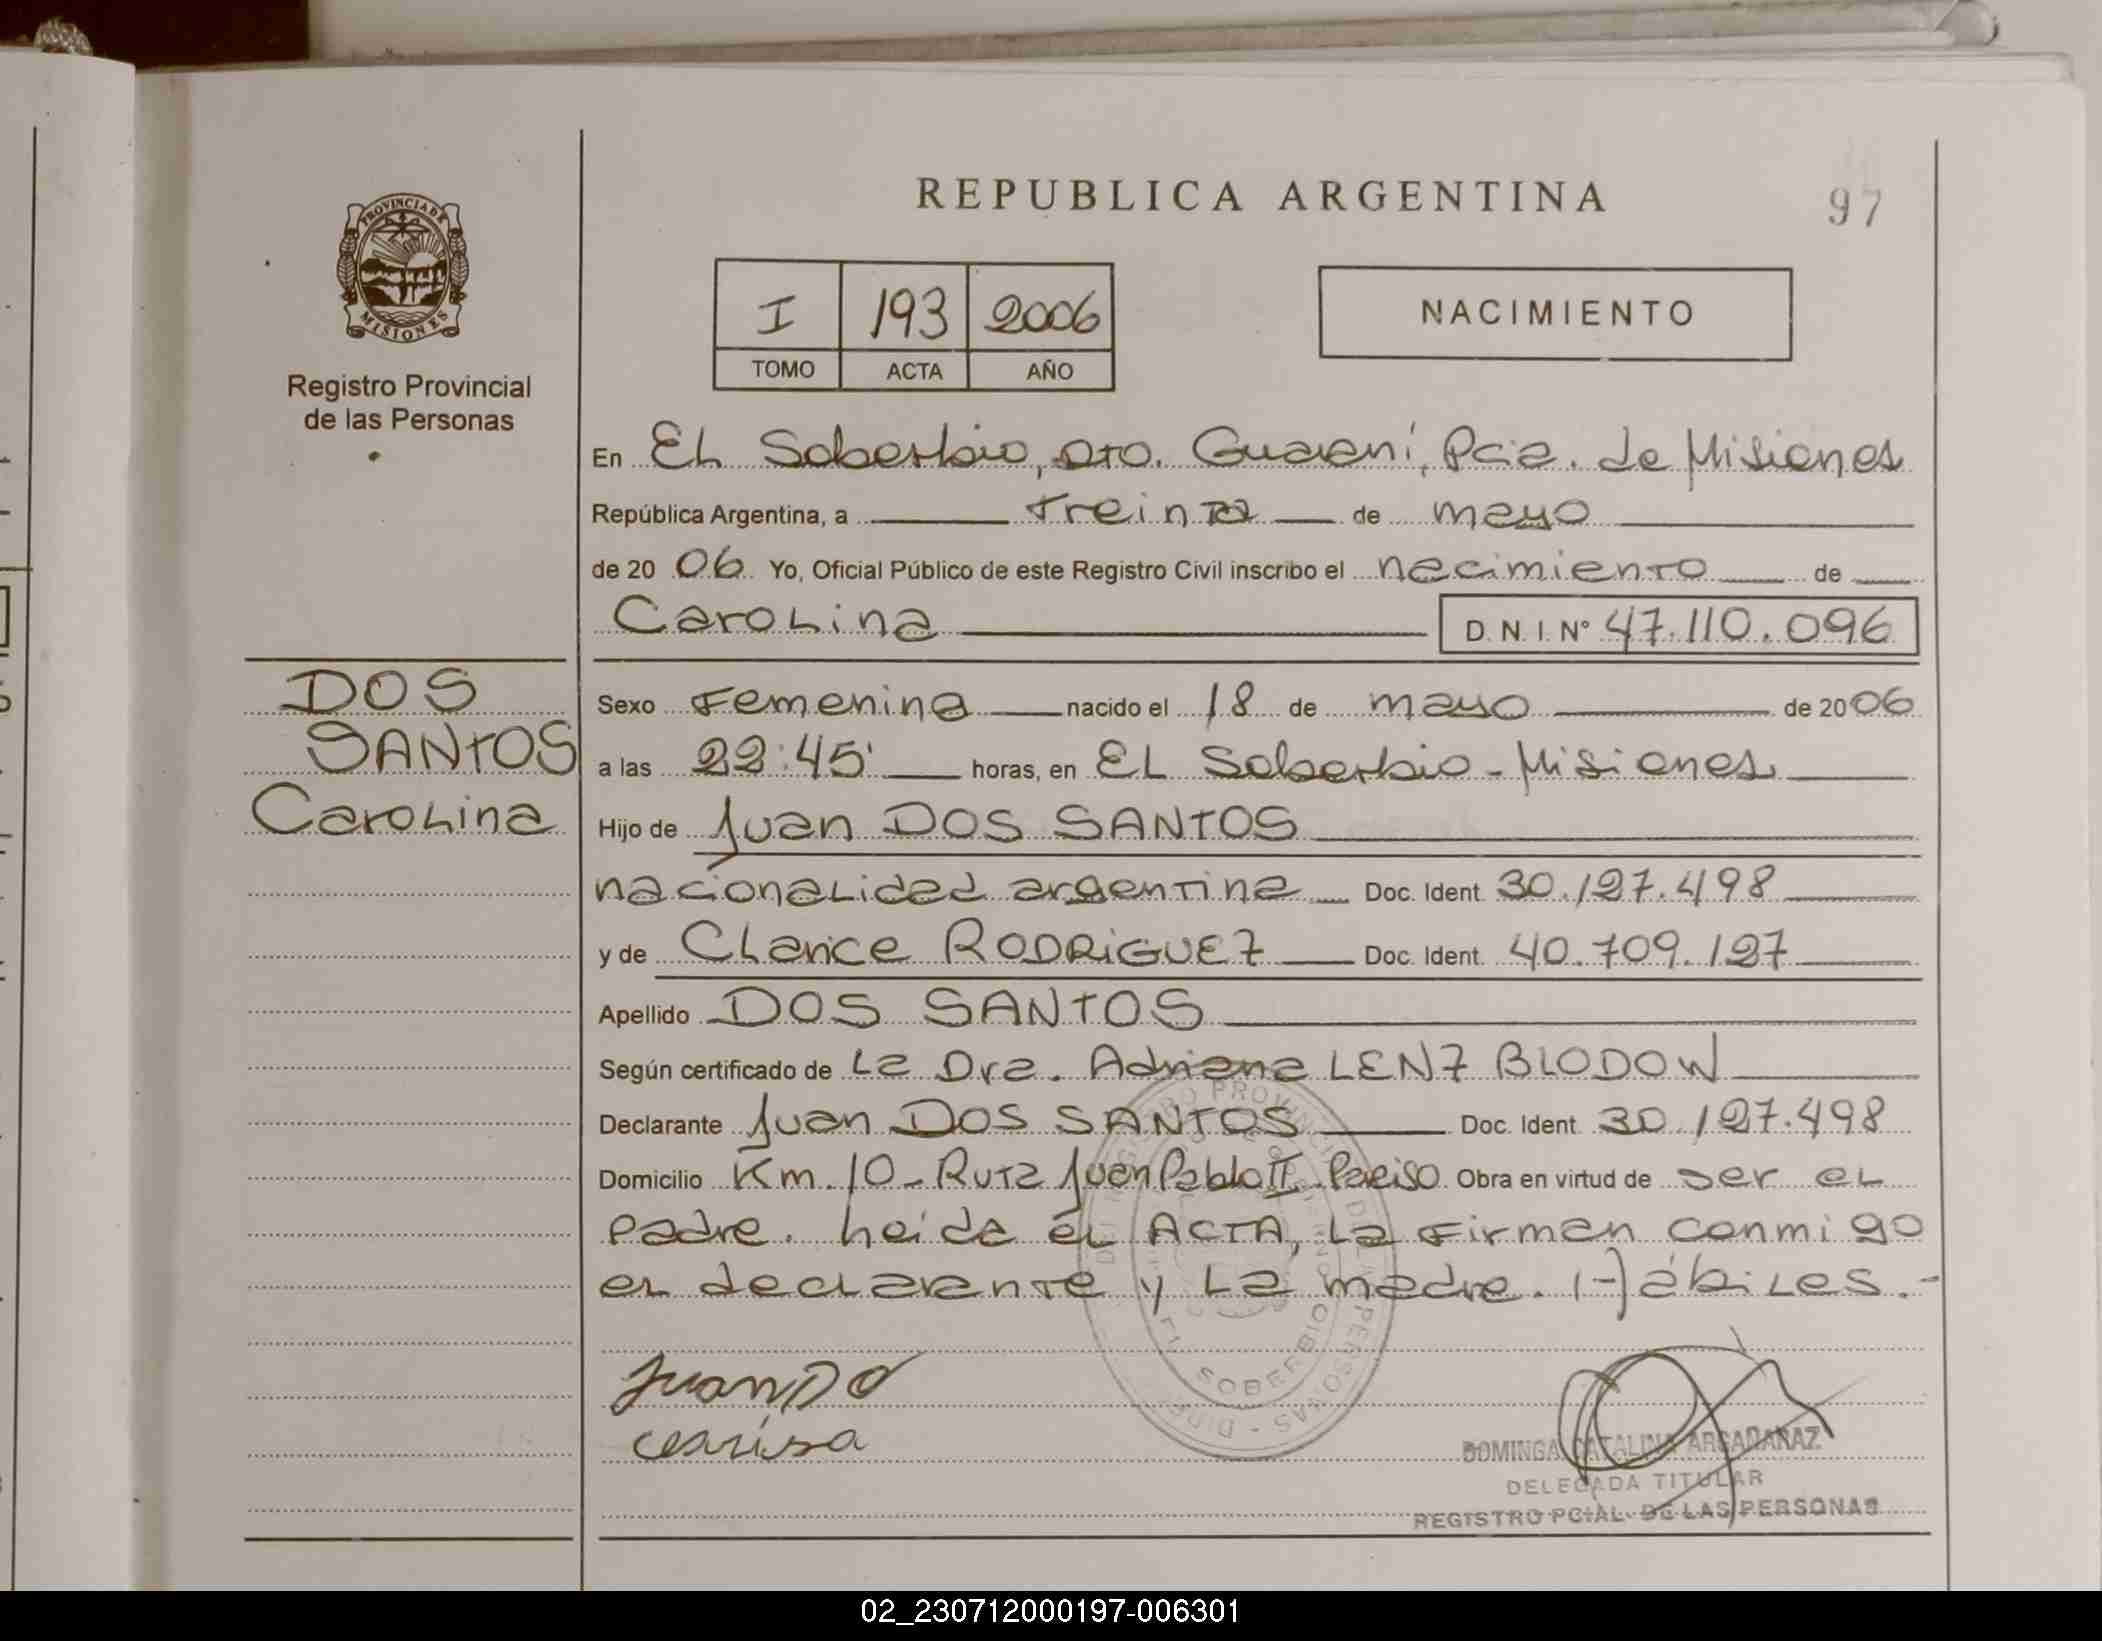 PROVINCIA DE
MISIONES
Registro Provincial
de las Personas
REPUBLICA ARGENTINA
97
I 193 2006
TOMO ACTA AÑO
NACIMIENTO
En EL Soberbio, Dto. Guarani, Pcia. de Misiones
República Argentina, a treinta de mayo
de 20 06 Yo, Oficial Público de este Registro Civil inscribo el nacimiento de
Carolina D.N.I. N° 47.110.096
DOS
SANTOS
Carolina
Sexo Femenina nacido el 18 de mayo de 20 06
a las 22:45' horas, en EL Soberbio - Misiones
Hijo de Juan DOS SANTOS
nacionalidad argentina Doc. Ident. 30.127.498
y de Clarice RODRIGUEZ Doc. Ident. 40.709.127
Apellido DOS SANTOS
Según certificado de La Dra. Adriana LENZ BLODOW
Declarante Juan DOS SANTOS Doc. Ident. 30.127.498
Domicilio Km. 10 - Ruta Juan Pablo II Paraiso Obra en virtud de ser el
padre. Leida el ACTA, la firman conmigo
el declarante y La madre. Hábiles.-
SOBERBIO
Juan DO
DOMINGA CATALINA ARGAÑARAZ
DELEGADA TITULAR
REGISTRO PCIAL. DE LAS PERSONAS
02_230712000197-006301